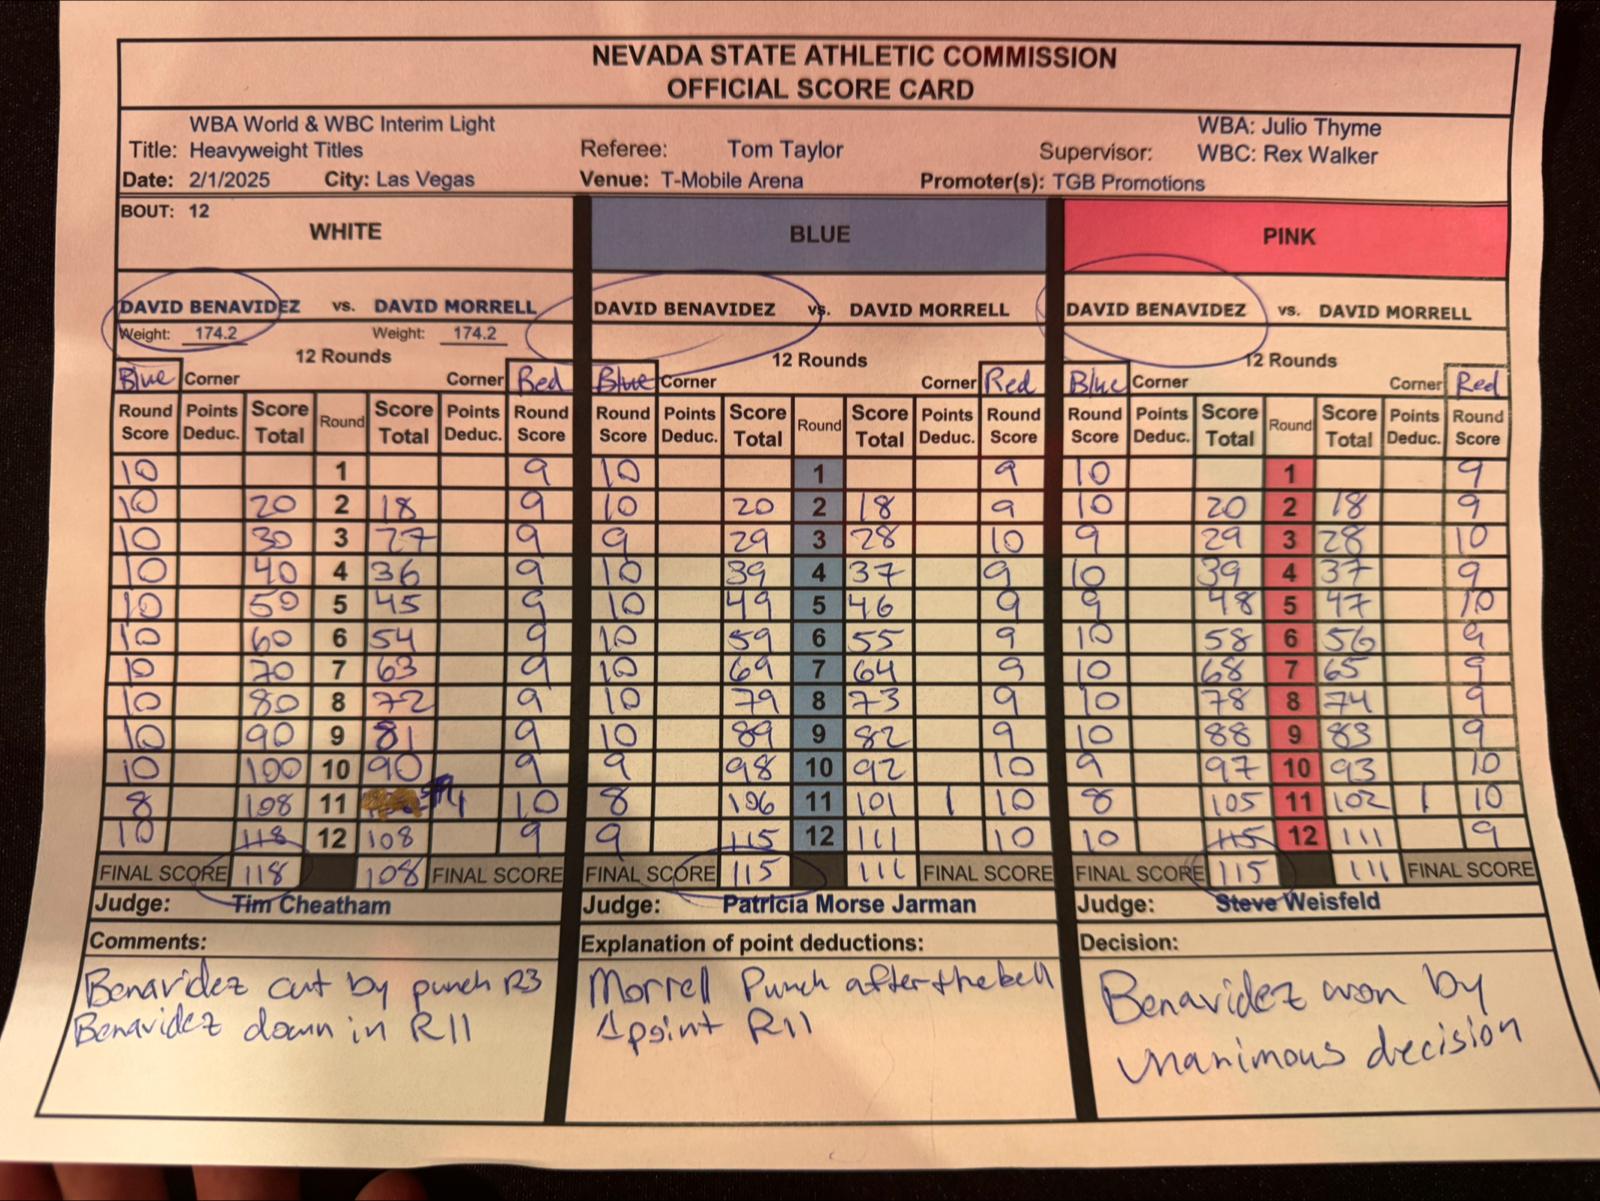 NEVADA STATE ATHLETIC COMMISSION
OFFICIAL SCORE CARD
WBA World & WBC Interim Light
Title: Heavyweight Titles
Referee: Tom Taylor
Supervisor: WBA: Julio Thyme
WBC: Rex Walker
Date: 2/1/2025 City: Las Vegas Venue: T-Mobile Arena Promoter(s): TGB Promotions
BOUT: 12
WHITE BLUE PINK
DAVID BENAVIDEZ vs. DAVID MORRELL DAVID BENAVIDEZ vs. DAVID MORRELL DAVID BENAVIDEZ vs. DAVID MORRELL
Weight: 174.2 Weight: 174.2
12 Rounds 12 Rounds 12 Rounds
Blue Corner Corner Red Blue Corner Corner Red Blue Corner Corner Red
Round Score Points Deduc. Score Total Round Score Total Points Deduc. Round Score Round Score Points Deduc. Score Total Round Score Total Points Deduc. Round Score Round Score Points Deduc. Score Total Round Score Total Points Deduc. Round Score
10 1 9 10 1 9 10 1 9
10 20 2 18 9 10 20 2 18 9 10 20 2 18 9
10 30 3 27 9 9 29 3 28 10 9 29 3 28 10
10 40 4 36 9 10 39 4 37 9 10 39 4 37 9
10 50 5 45 9 10 49 5 46 9 9 48 5 47 10
10 60 6 54 9 10 59 6 55 9 10 58 6 56 9
10 70 7 63 9 10 69 7 64 9 10 68 7 65 9
10 80 8 72 9 10 79 8 73 9 10 78 8 74 9
10 90 9 81 9 10 89 9 82 9 10 88 9 83 9
10 100 10 90 9 9 98 10 92 10 9 97 10 93 10
8 108 11 1 10 8 106 11 101 1 10 8 105 11 102 1 10
10 118 12 108 9 9 115 12 111 10 10 115 12 111 9
FINAL SCORE 118 108 FINAL SCORE FINAL SCORE 115 111 FINAL SCORE FINAL SCORE 115 111 FINAL SCORE
Judge: Tim Cheatham Judge: Patricia Morse Jarman Judge: Steve Weisfeld
Comments: Explanation of point deductions: Decision:
Benavidez cut by punch R3
Benavidez down in R11
Morrell Punch after the bell
1 point R11
Benavidez won by
unanimous decision